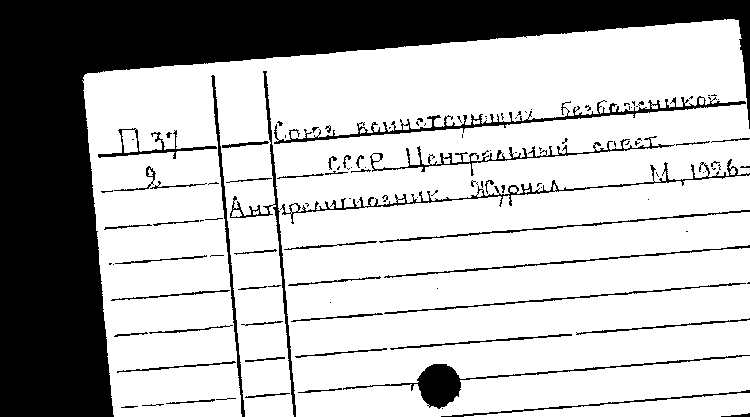 П 37 Союз воинствующих безбожников
2 СССР Центральный совет.
Антирелигиозник. Журнал. М., 1926-